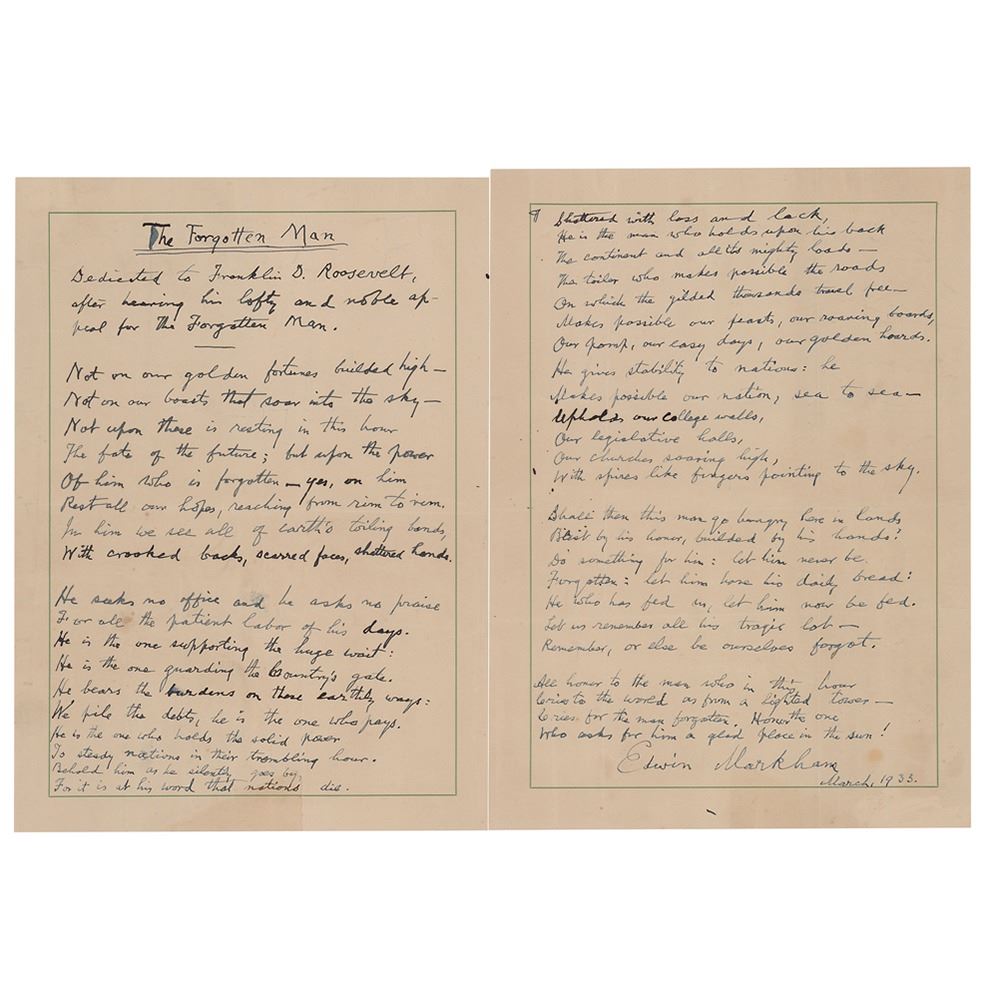 The Forgotten Man
Dedicated to Franklin D. Roosevelt,
after hearing his lofty and noble ap-
peal for the Forgotten Man.
Not on our golden fortunes builded high—
Not on our boasts that soar into the sky—
Not upon these is resting in this hour
The fate of the future; but upon the power
Of him who is forgotten—yes, on him
Rest all our hopes, reaching from rim to rim.
In him we see all of earth's toiling bands,
With crooked backs, scarred faces, shattered hands.
He seeks no office and he asks no praise
For all the patient labor of his days.
He is the one supporting the huge wait:
He is the one guarding the Country's gate.
He bears the burdens on these earthly ways:
We pile the debts, he is the one who pays.
He is the one who holds the solid power
To steady nations in their trembling hour.
Behold him as he silently goes by,
For it is at his word that nations die.
Shattered with loss and lack,
He is the man who holds upon his back
The continent and all its mighty loads—
The toiler who makes possible the roads
On which the gilded thousands travel free—
Makes possible our feasts, our roaring boards,
Our pomp, our easy days, our golden hoards.
He gives stability to nations: he
Makes possible our nation, sea to sea—
Upholds our college walls,
Our legislative halls,
Our churches soaring high,
With spires like fingers pointing to the sky.
Shall then this man go hungry here in lands
Blest by his honor, builded by his hands?
Do something for him: let him never be
Forgotten: let him have his daily bread:
He who has fed us, let him now be fed.
Let us remember all his tragic lot—
Remember, or else be ourselves forgot.
All honor to the man who in this hour
Cries to the world as from a lighted tower—
Cries for the man forgotten. Honor the one
Who asks for him a glad place in the sun!
Edwin Markham
March, 1933.